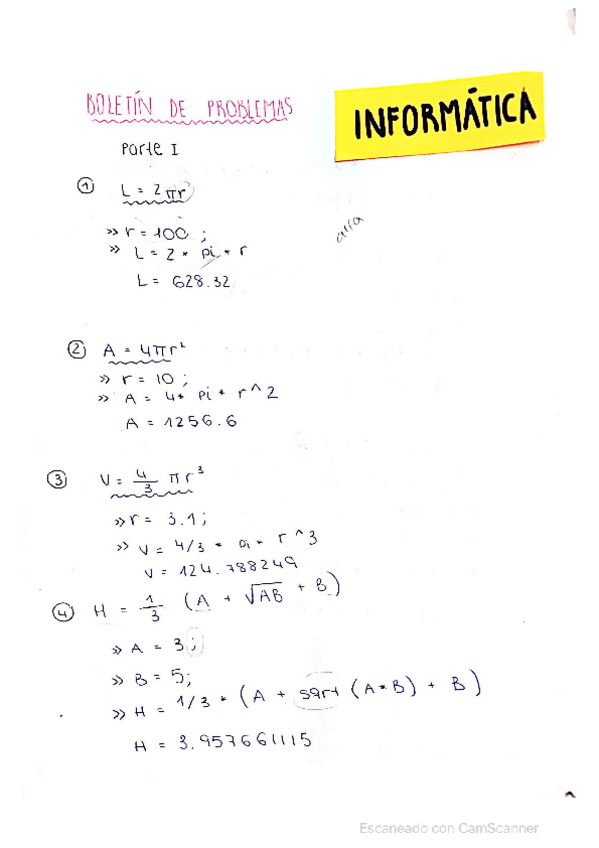 BOLETÍN DE PROBLEMAS
INFORMÁTICA
Parte I
① L = 2πr
>> r = 100 ;
>> L = 2 * pi * r
L = 628.32
② A = 4πr²
>> r = 10 ;
>> A = 4* pi * r^2
A = 1256.6
③ V = 4/3 πr³
>> r = 3.1;
>> V = 4/3 * pi * r^3
V = 124.788249
④ H = 1/3 (A + √AB + B)
>> A = 3;
>> B = 5;
>> H = 1/3 * (A + sqrt (A*B) + B)
H = 3.957661115
Escaneado con CamScanner